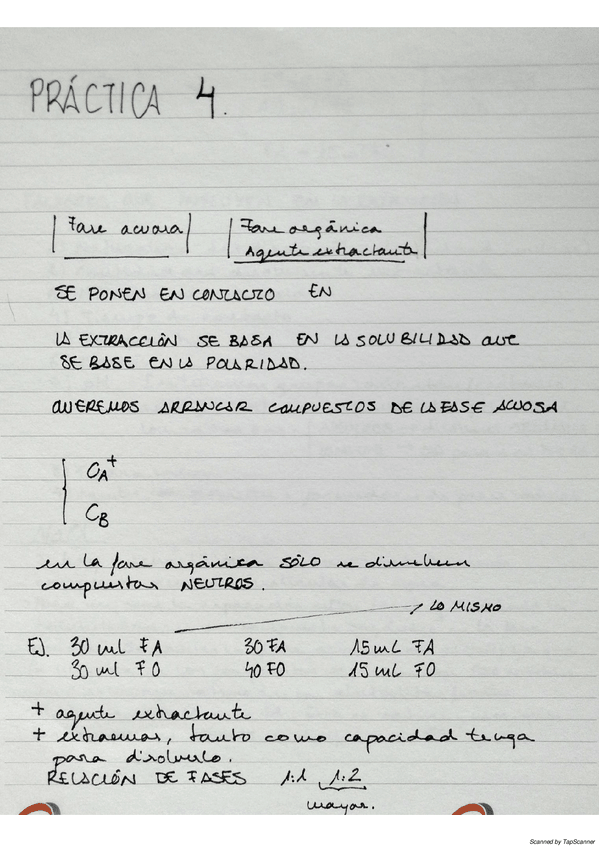 PRÁCTICA 4.
Fase acuosa
Fase orgánica
Agente extractante
SE PONEN EN CONTACTO EN
LA EXTRACCIÓN SE BASA EN LA SOLUBILIDAD QUE
SE BASE EN LA POLARIDAD.
QUEREMOS ARRANCAR COMPUESTOS DE LA FASE ACUOSA
CA+
CB
en la fase orgánica SÓLO se disuelven
compuestos NEUTROS.
LO MISMO
EJ. 30 ml FA 30 FA 15 mL FA
30 ml FO 40 FO 15 mL FO
+ agente extractante
+ extraemos, tanto como capacidad tenga
para disolverlo.
RELACIÓN DE FASES 1:1 1:2
mayor.
Scanned by TapScanner